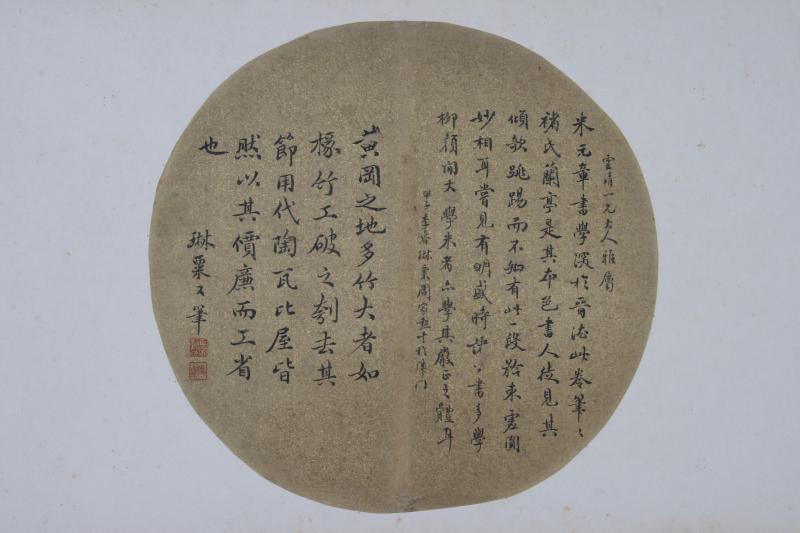 雲清一兄大人雅屬
米元章書學深於晉法此卷筆筆
褚氏蘭亭是其本色書人徒見其
傾欹跳踢而不知有此一段矜束寬圓
妙相耳嘗見有明盛時諸公書多學
柳顏閒大學米者亦學其嚴正之體耳
甲子季春琳粟周家
黃岡之地多竹大者如
椽竹工破之刳去其
節用代陶瓦比屋皆
然以其價廉而工省
也
琳粟又筆